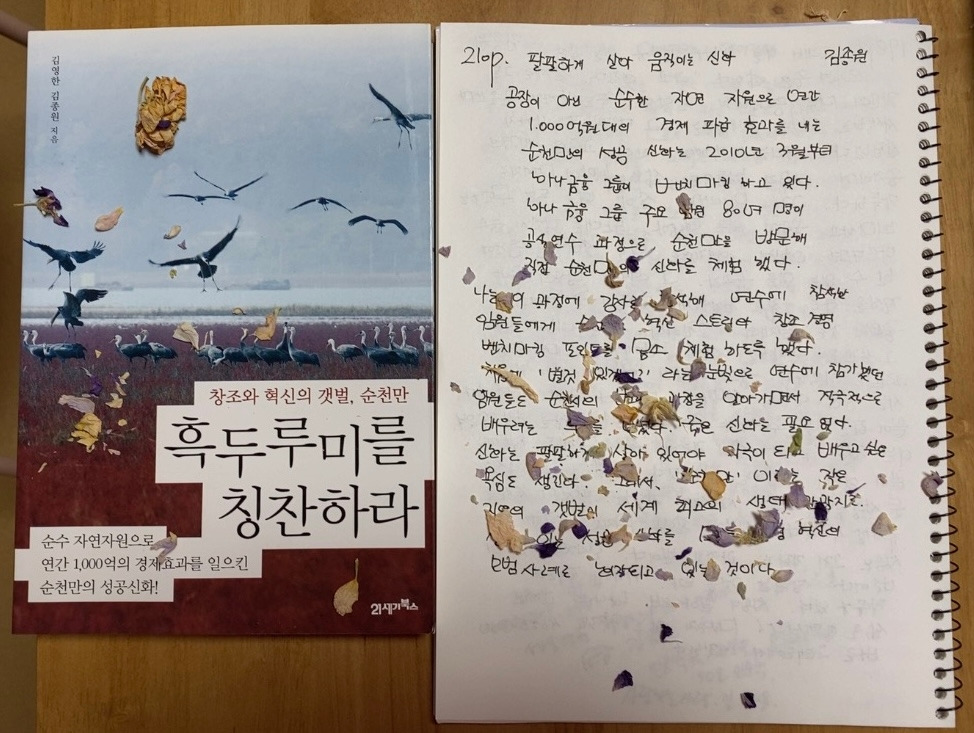 김영한 김종원 지음
창조와 혁신의 갯벌, 순천만
흑두루미를
칭찬하라
순수 자연자원으로
연간 1,000억의 경제효과를 일으킨
순천만의 성공신화!
21세기북스
210p. 팔팔하게 살아 움직이는 신화 김종원
공장이 아닌 순수한 자연 자원으로 연간
1.000억원대의 경제 파급 효과를 내는
순천만의 성공 신화는 2010년 3월부터
하나금융 그룹이 벤치마킹 하고 있다.
하나 금융 그룹 주요 임원 80여 명이
공식연수 과정으로 순천만을 방문해
직접 순천만의 신화를 체험 했다.
과정에 강사로 연수에 참석한
임원들에게 혁신 스토리와 창조 경영
벤치마킹 포인트를 몸소 체험 하도록 했다.
라는 눈빛으로 연수에 참가했던
임원들도 과정을 알아가면서 적극적으로
배우려는 죽은 신화는 필요 없다.
신화는 팔팔하게 살아 있어야 자극이 되고 배우고 싶은
욕심도 생긴다. 작은
지역의 갯벌이 세계 최고의 생태 관광지로
성공 신화를 혁신의
모범 사례로 평가되고 있는 것이다